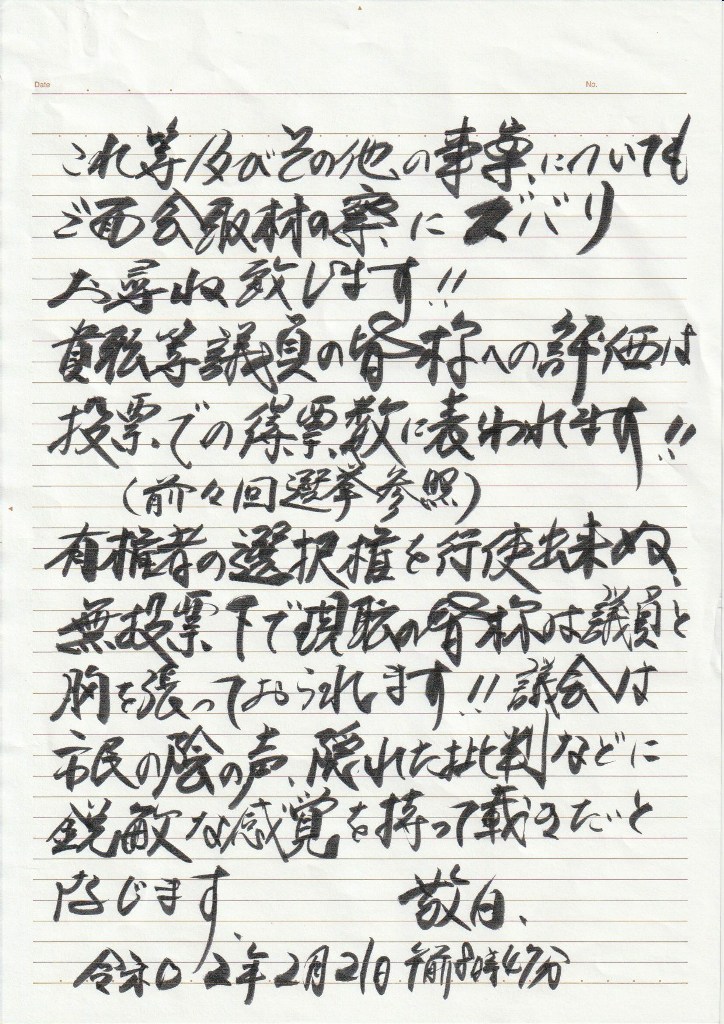 Date No.
これ等及びその他の事案についても
ご面会取材の察にズバリ
お尋ね致します!!
貴職等議員の皆称への評価は
投票での得票数に表われます!!
(前々回選挙参照)
有権者の選択権を行使出来ぬ、
無投票下で現職の皆称は議員と
胸を張っておられます!!議会は
市民の陰の声、隠れた批判などに
鋭敏な感覚を持って戴きたいと
存じます。
敬白、
令和2年2月21日 午前8時47分